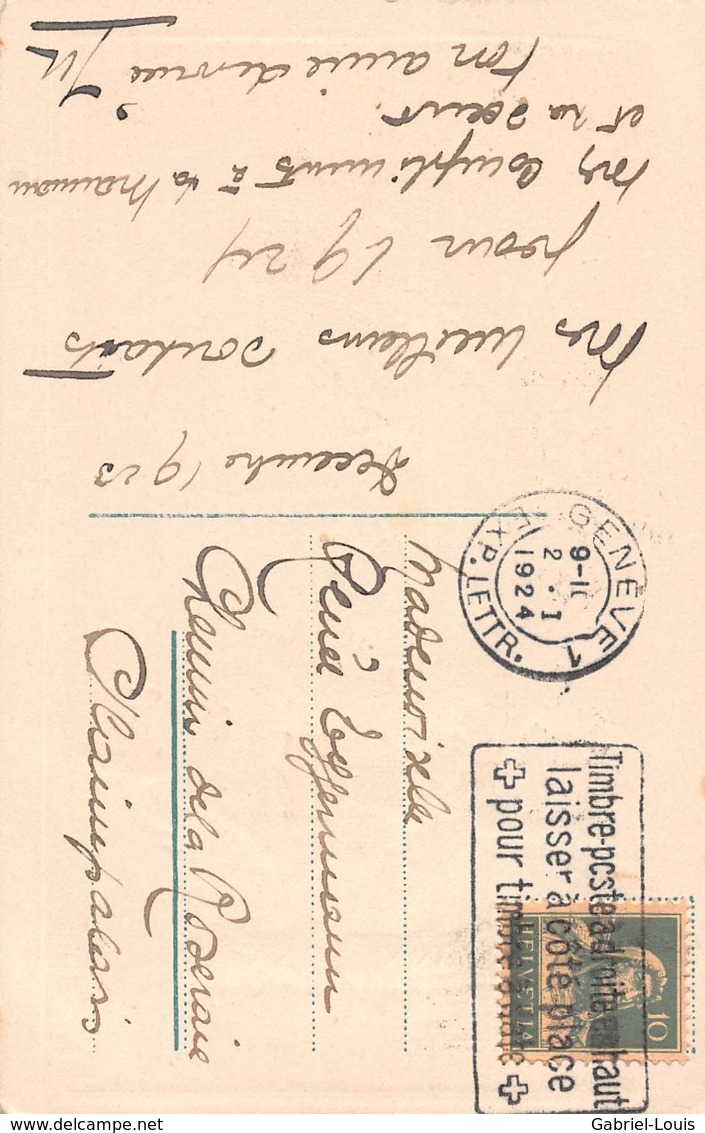 Decembre 1923
Mes meilleurs souhaits
pour 1924
Mes Compliments à ta maman
et ta soeur
Ton amie dévouée
Mademoiselle
Renée
Chemin de la Roseraie
Plainpalais
GENÈVE 1
9-11
2. I
1924
EXP. LETTR.
Timbre-poste à droite en haut
laisser à côté place
pour timbre à date
HELVETIA
10
delcampe.net
Gabriel-Louis